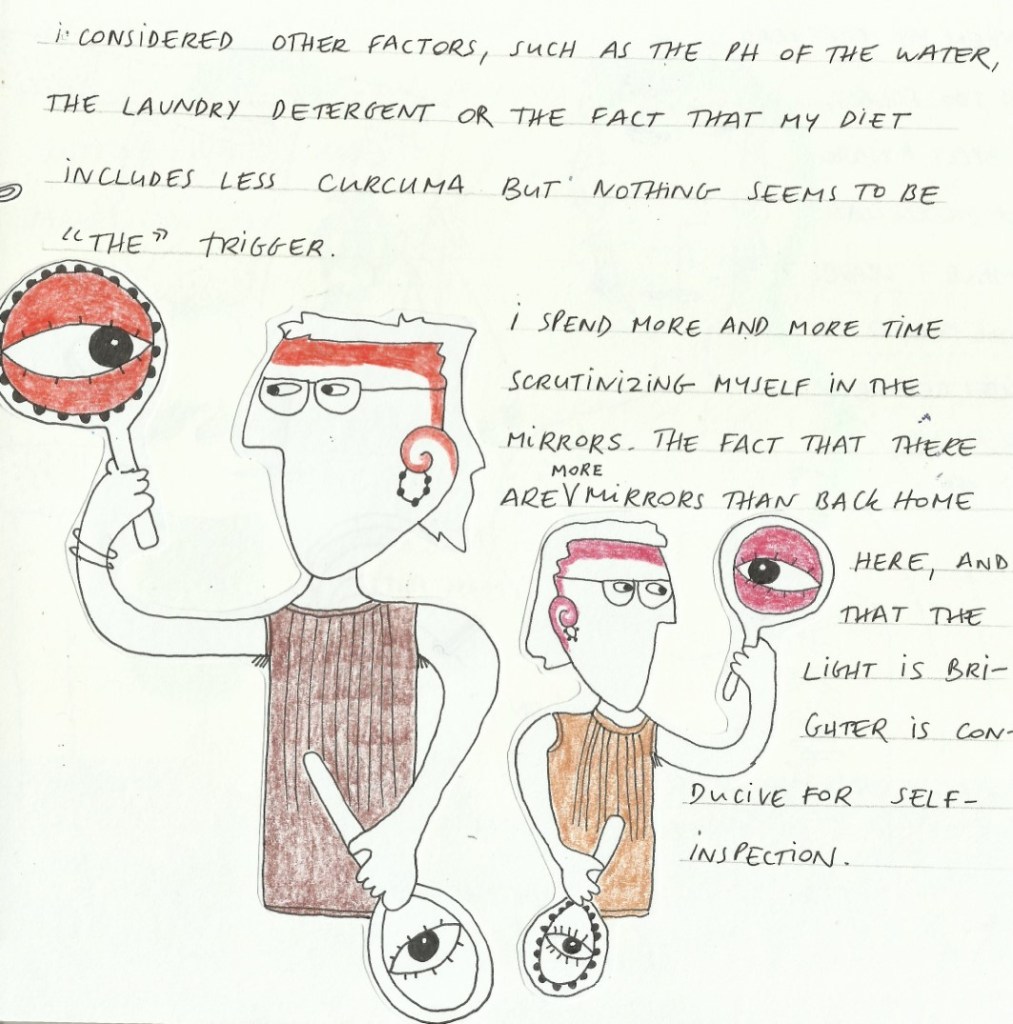 i CONSiDERED OTHER FACTORS, SUCH AS THE PH OF THE WATER,
THE LAUNDRY DETERGENT OR THE FACT THAT MY DiET
iNCLUDES LESS CURCUMA BUT NOTHiNG SEEMS TO BE
“THE” TRiGGER.
i SPEND MORE AND MORE TiME
SCRUTiNiZiNG MYSELF iN THE
MiRRORS. THE FACT THAT THERE
MORE
ARE V MiRRORS THAN BACK HOME
HERE, AND
THAT THE
LiGHT iS BRi-
GHTER iS CON-
DUCiVE FOR SELF-
iNSPECTiON.